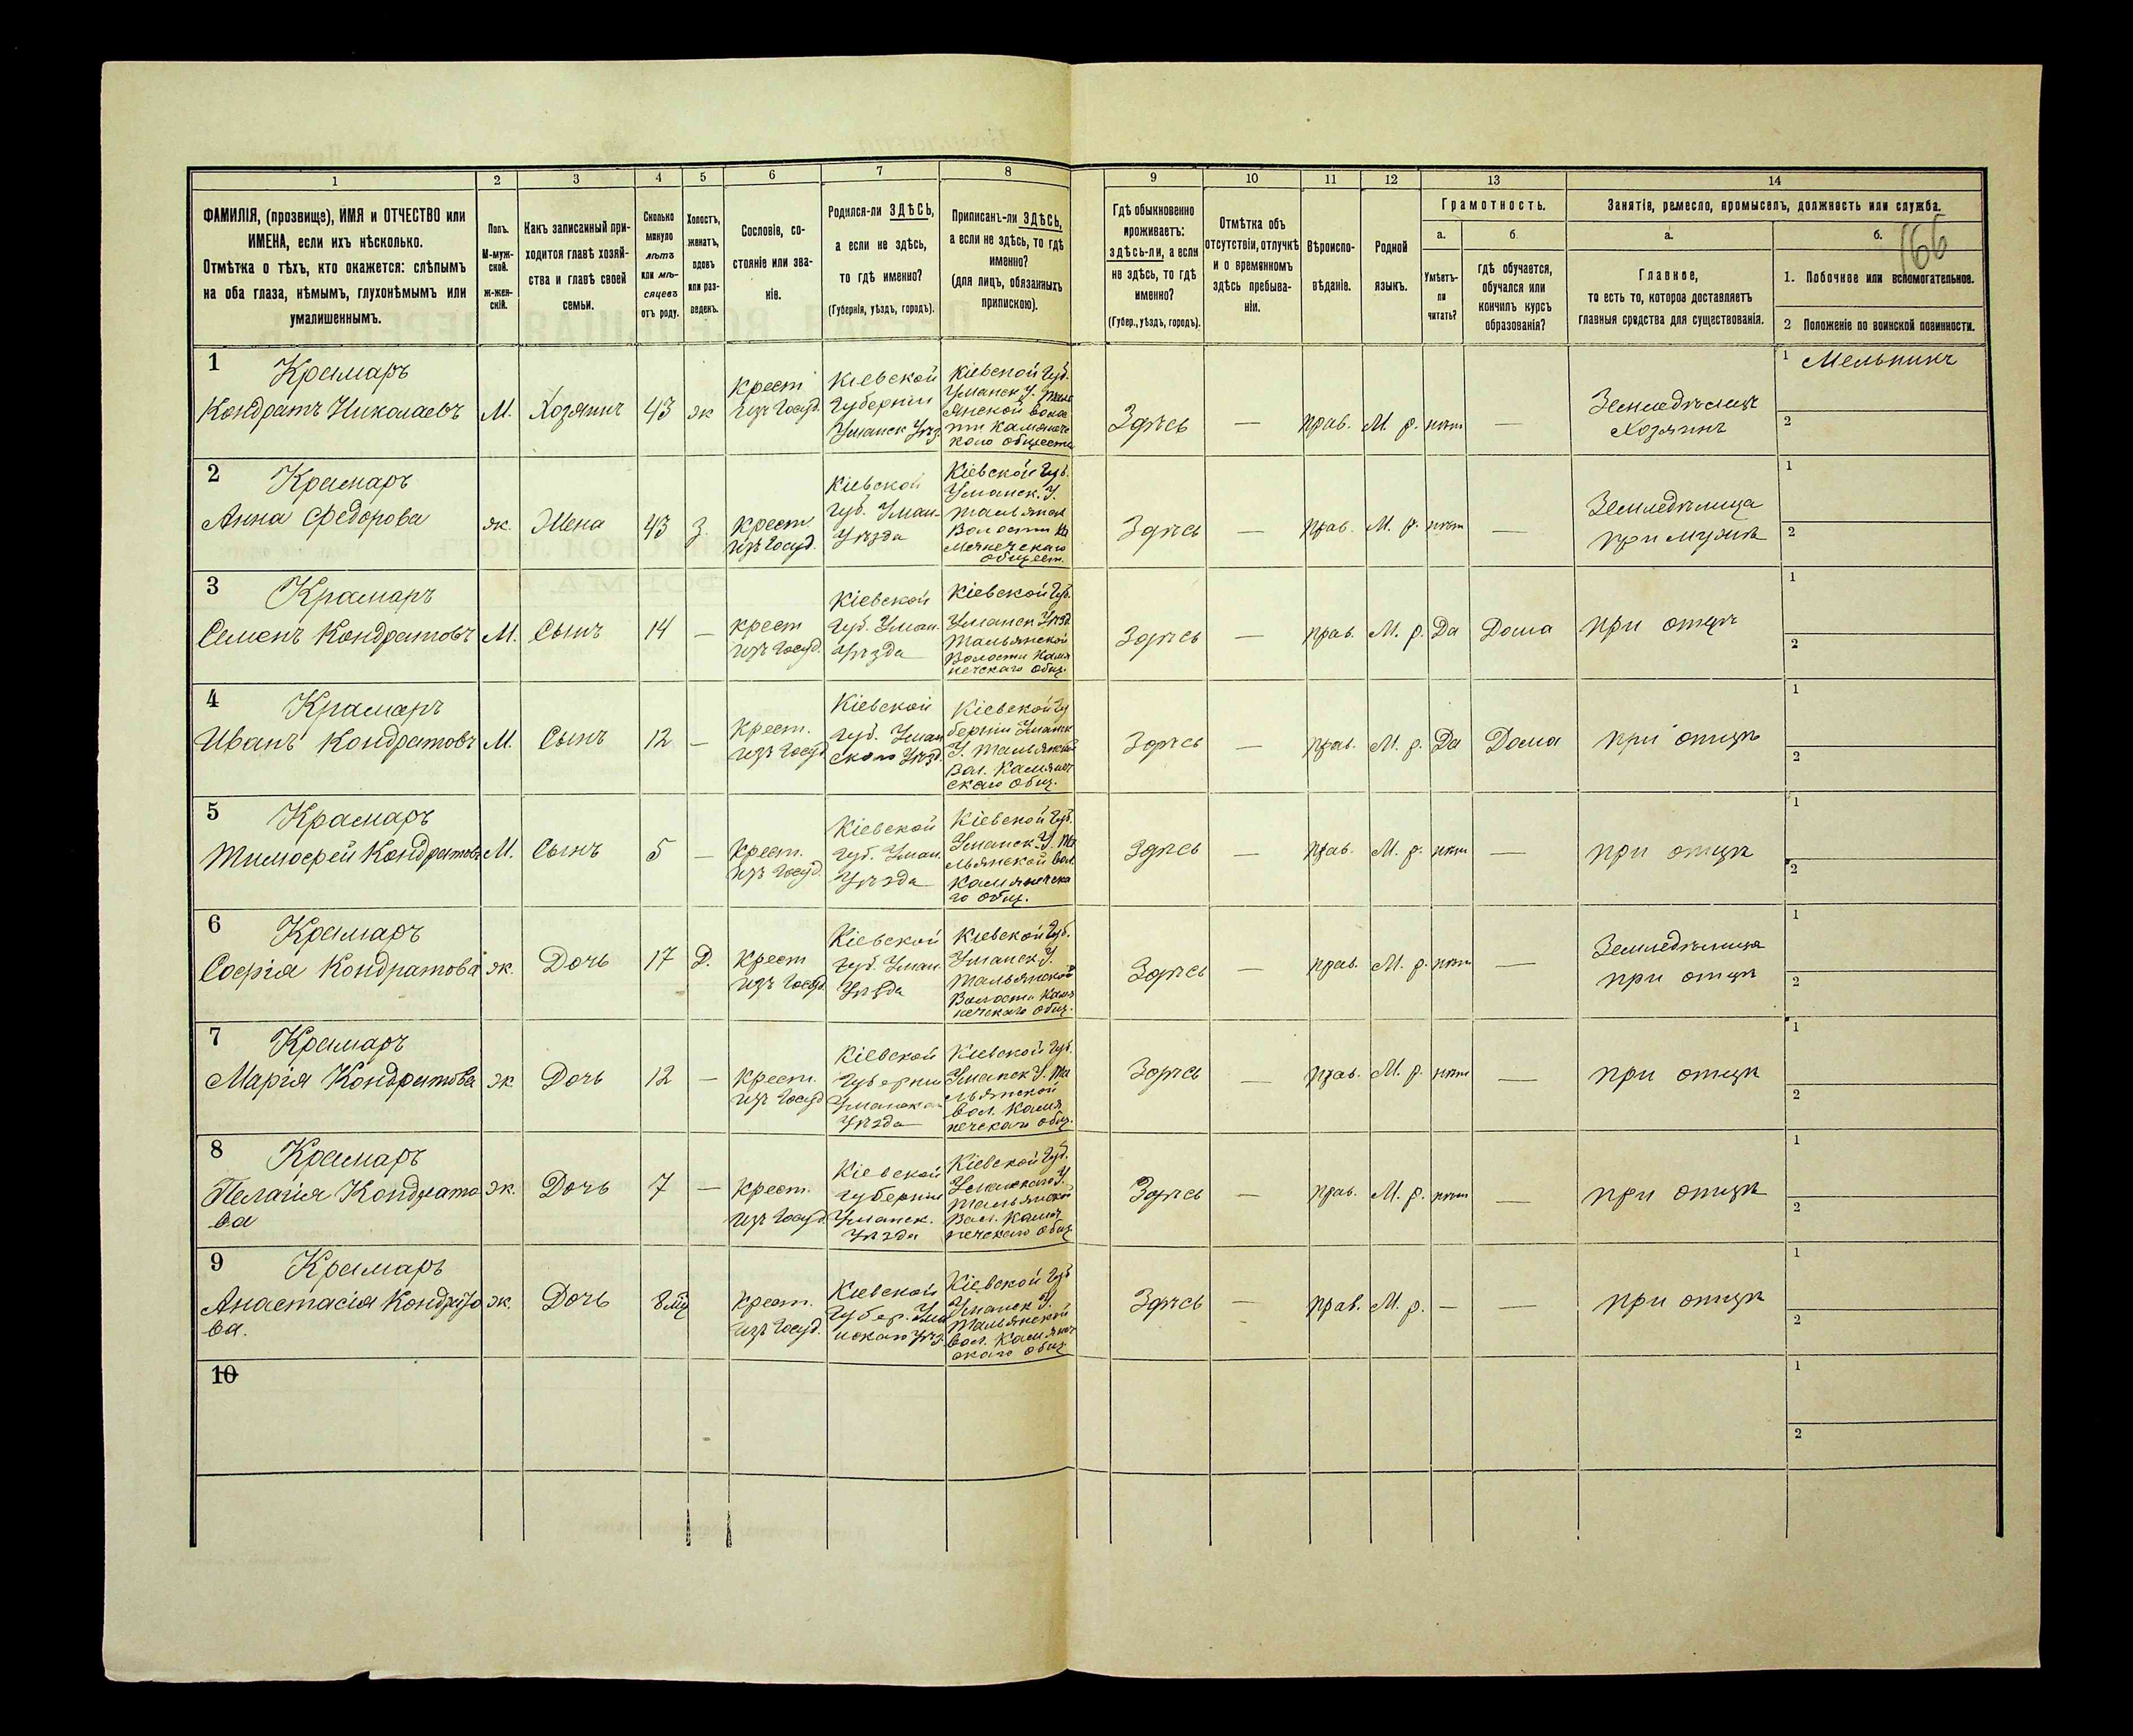 1 2 3 4 5 6 7 8 9 10 11 12 13 14
ФАМИЛІЯ, (прозвище), ИМЯ и ОТЧЕСТВО или
ИМЕНА, если ихъ нѣсколько.
Отмѣтка о тѣхъ, кто окажется: слѣпымъ
на оба глаза, нѣмымъ, глухонѣмымъ или
умалишеннымъ.
Полъ.
М-муж-
ской.
ж-жен-
скій.
Какъ записанный при-
ходится главѣ хозяй-
ства и главѣ своей
семьи.
Сколько
минуло
лѣтъ
или мѣ-
сяцевъ
отъ роду.
Холостъ,
женатъ,
вдовъ
или раз-
веденъ.
Сословіе, со-
стояніе или зва-
ніе.
Родился-ли ЗДѢСЬ,
а если не здѣсь,
то гдѣ именно?
(Губернія, уѣздъ, городъ).
Приписанъ-ли ЗДѢСЬ,
а если не здѣсь, то гдѣ
именно?
(для лицъ, обязанныхъ
припискою).
Гдѣ обыкновенно
проживаетъ:
здѣсь-ли, а если
не здѣсь, то гдѣ
именно?
(Губер., уѣздъ, городъ).
Отмѣтка объ
отсутствіи, отлучкѣ
и о временномъ
здѣсь пребыва-
ніи.
Вѣроиспо-
вѣданіе.
Родной
языкъ.
Грамотность.
а.
Умѣетъ-
ли
читать?
б
гдѣ обучается,
обучался или
кончилъ курсъ
образованія?
Занятіе, ремесло, промыселъ, должность или служба.
а.
Главное,
то есть то, которое доставляетъ
главныя средства для существованія.
б.
166
1. Побочное или вспомогательное.
2 Положеніе по воинской повинности.
1 Крамаръ
Кондратъ Николаевъ
М. Хозяинъ 43 ж
Крест
изъ Госуд.
Кіевской
Губерніи
Уманск Уѣз.
Кіевской Губ.
Уманск У. Таль
янской воло
сти Камянеч
кого обществ
Здѣсь — прав. М. р. нѣтъ —
Земледѣлецъ
Хозяинъ
1 Мельникъ
2
2 Крамаръ
Анна Федорова
ж. Жена 43 З.
Крест.
изъ Госуд.
Кіевской
Губ. Уман.
Уѣзда
Кіевской Губ.
Уманск. У.
Тальянск
Волости Ка
мянечскаго
общест.
Здѣсь — прав. М. р. нѣтъ —
Земледѣлица
при мужѣ
1
2
3 Крамаръ
Семенъ Кондратовъ
М. Сынъ 14 —
крест
изъ Госуд.
Кіевской
Губ. Уман.
Уѣзда
Кіевской Губ.
Уманск Уѣзд
Тальянской
Волости Камя
нечскаго Общ.
Здѣсь — прав. М. р. Да Дома при отцѣ
1
2
4 Крамаръ
Иванъ Кондратовъ
М. Сынъ 12 —
Крест.
изъ Госуд
Кіевской
Губ. Уман
ского Уѣзд.
Кіевской Гу
берніи Уманск
У. Тальянской
Вол. Камянеч
скаго Общ.
Здѣсь — прав. М. р. Да Дома при отцѣ
1
2
5 Крамаръ
Тимофей Кондратовъ
М. Сынъ 5 —
Крест.
изъ Госуд.
Кіевской
Губ. Уман.
Уѣзда
Кіевской Губ.
Уманск. У. Та
льянской Вол.
Камянечска
го Общ.
Здѣсь — прав. М. р. нѣтъ — при отцѣ
1
2
6 Крамаръ
Софія Кондратова
ж. Дочь 17 Д.
Крест
изъ Госуд
Кіевской
Губ. Уман.
Уѣзда
Кіевской Губ.
Уманск У.
Тальянской
Волости Камя
нечскаго Общ.
Здѣсь — прав. М. р. нѣтъ —
Земледѣлица
при отцѣ
1
2
7 Крамаръ
Марія Кондратова
ж. Дочь 12 —
Крест.
изъ Госуд
Кіевской
Губерніи
Уманско
Уѣзда
Кіевской Губ.
Уманск У. Та
льянской
Вол. Камя
нечскаго Общ.
Здѣсь — прав. М. р. нѣтъ — при отцѣ
1
2
8 Крамаръ
Пелагія Кондрато
ва
ж. Дочь 7 —
Крест.
изъ Госуд.
Кіевской
Губерніи
Уманск.
Уѣзда
Кіевской Губ.
Уманскаго У.
Тальянской
Вол. Камя
нечскаго Общ.
Здѣсь — прав. М. р. нѣтъ — при отцѣ
1
2
9 Крамаръ
Анастасія Кондрато
ва.
ж. Дочь 8 мц
Крест.
изъ Госуд.
Кіевской
Губер. Ума
нскаго Уѣз.
Кіевской Губ
Уманск У.
Тальянской
вол. Камянеч
скаго общ.
Здѣсь — прав. М. р. — — при отцѣ
1
2
10
1
2